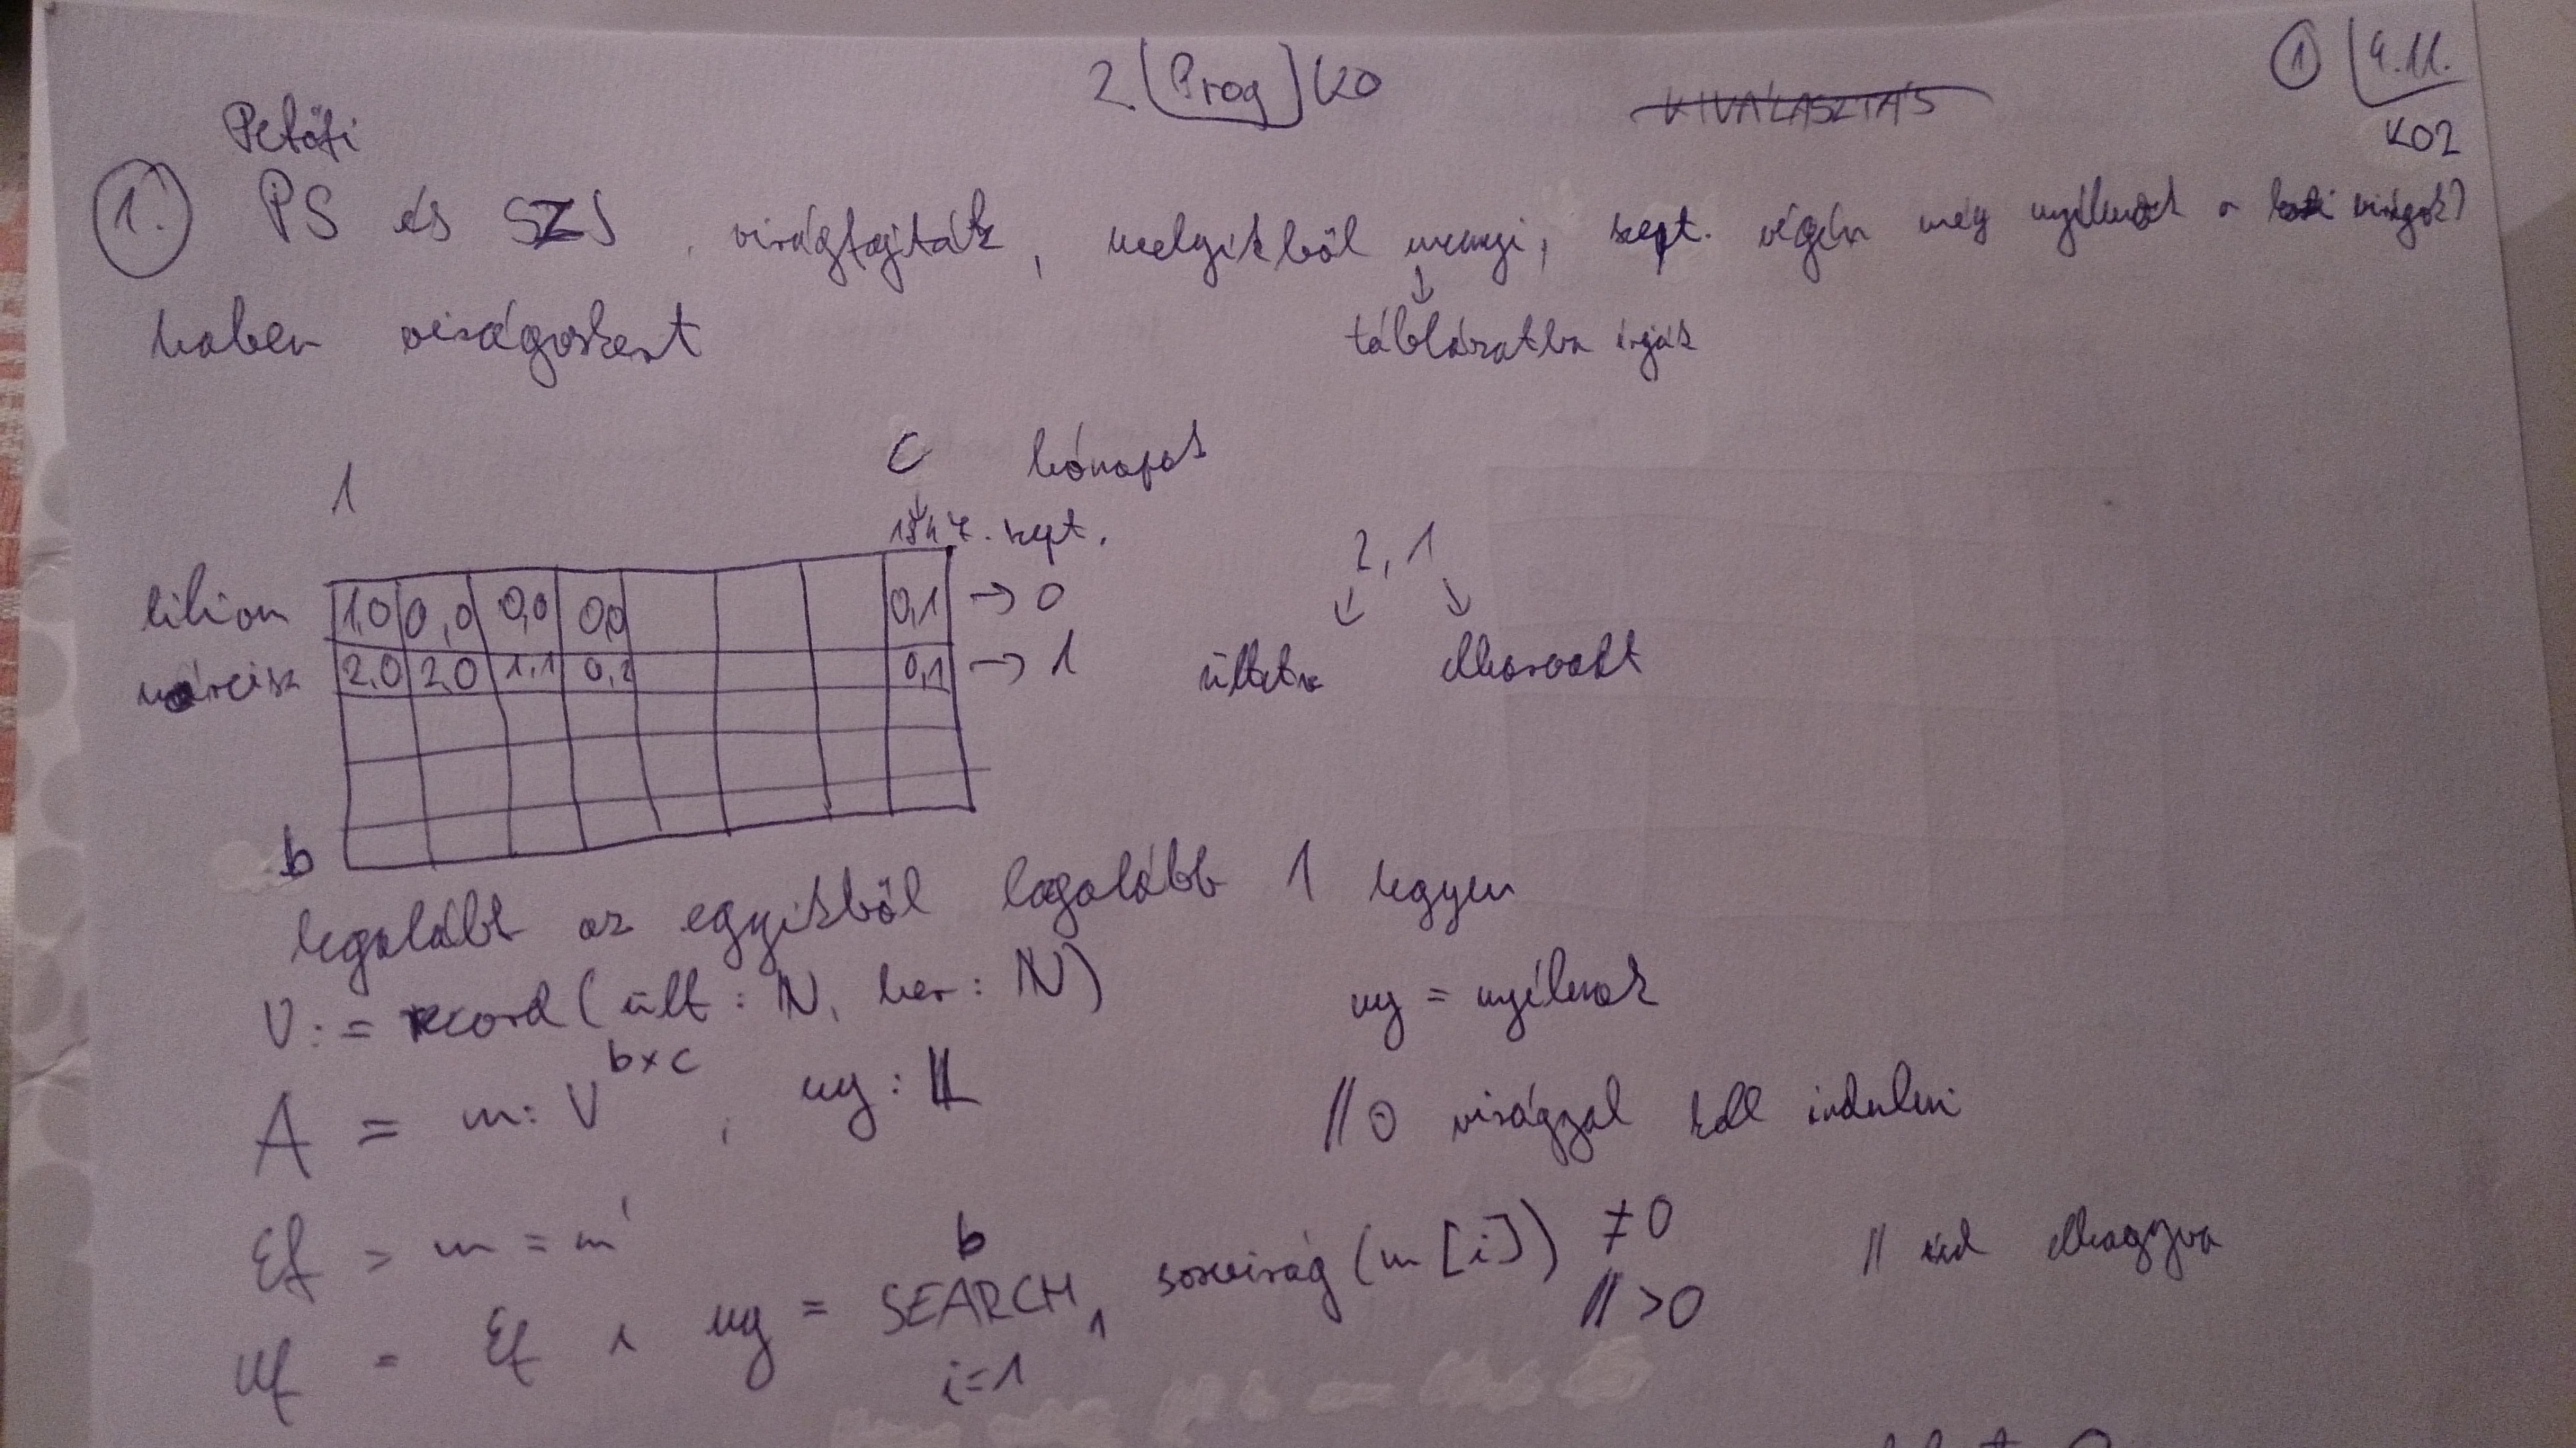 2. Prog KO
KIVÁLASZTÁS
① 4.11.
KO2
Petőfi
1. PS és SZJ virágfajták, melyikből mennyi, szept. végén még nyílnak a kerti virágok?
haben virágoskert
↓
táblázatba írják
1 C hónapok
↓
1847. szept.
liliom 1,0 0,0 0,0 0,0 0,1 → 0
nárcisz 2,0 2,0 1,1 0,2 0,1 → 1
2,1
↙ ↘
ültetve elhervadt
b
legalább az egyikből legalább 1 legyen
V := record (ült : ℕ, her : ℕ)
ny = nyílnak
A = m: V^{b×c}, ny: 𝕃
// 0 virággal kell indulni
Ef = m = m'
Uf = Ef ∧ ny = SEARCH_{i=1}^{b} sorvirág (m[i]) ≠ 0
// > 0
// ind elhagyva